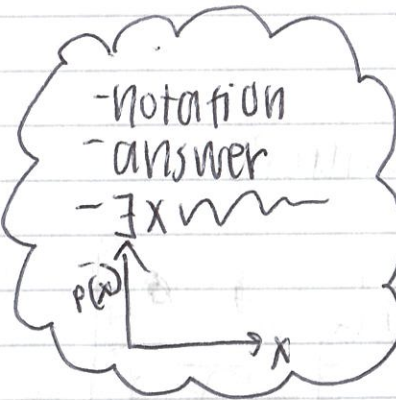 -notation
-answer
-∃x
p(x)
x